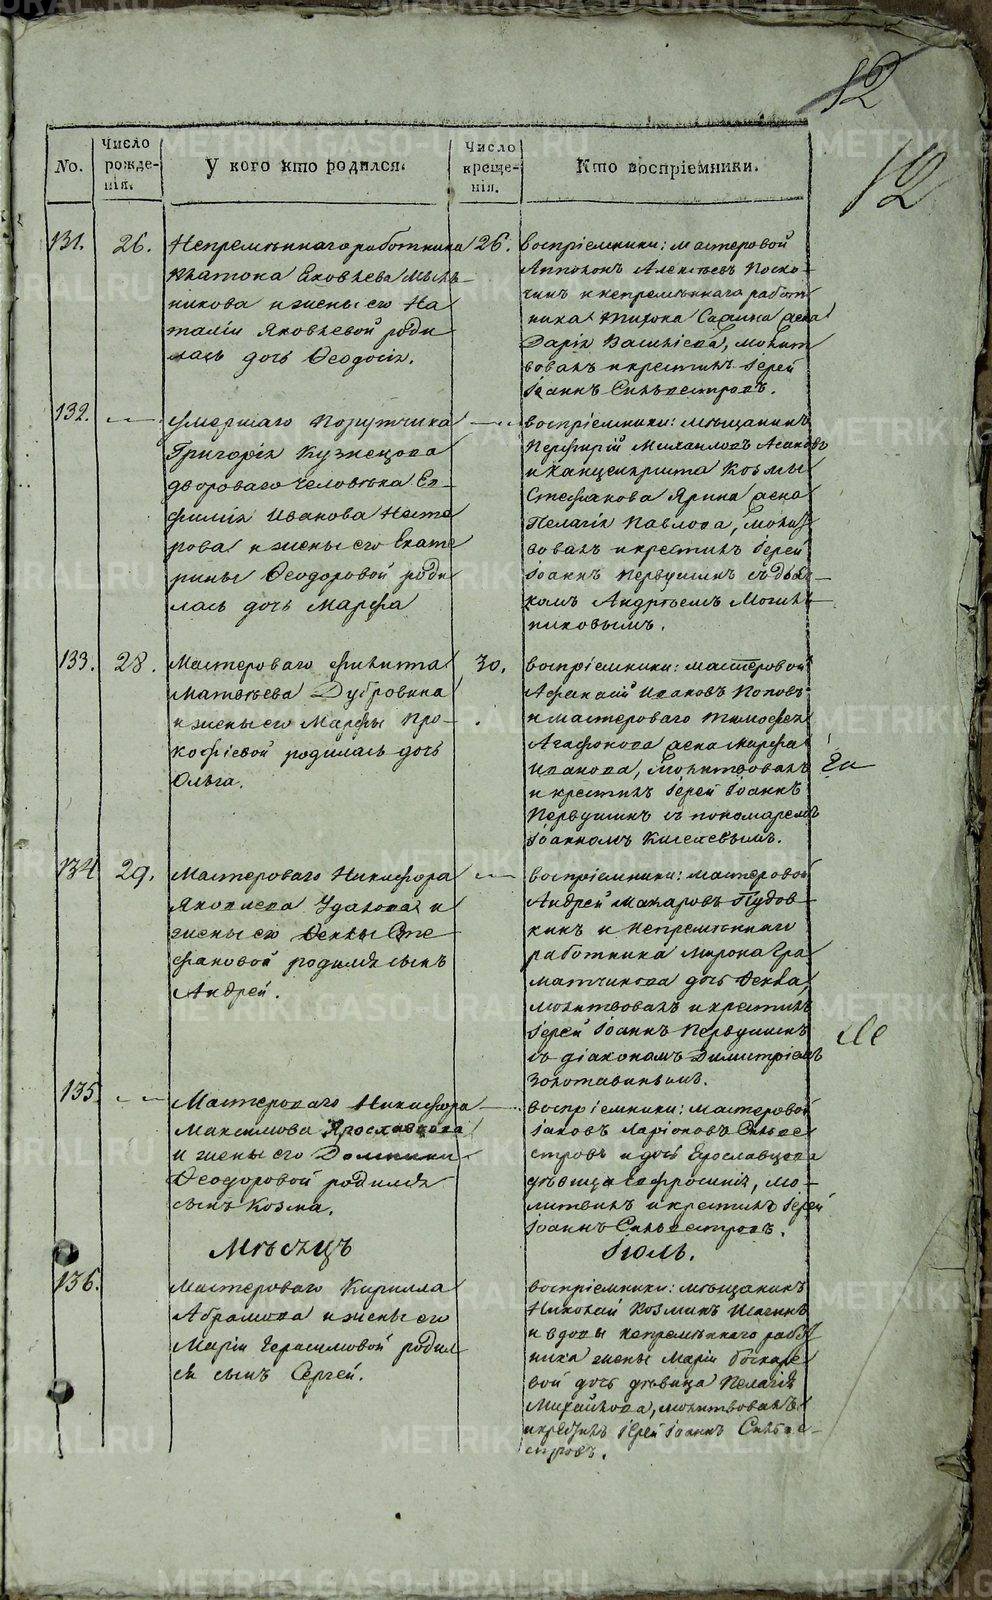 12
12
No.
Число рожденія.
У кого кто родился.
Число крещенія.
Кто воспріемники.
131.
26.
Непремѣннаго работника
Платона Яковлева Мыль-
никова и жены его На
таліи Яковлевой роди
лась дочь Ѳеодосія.
26.
воспріемники: мастеровой
Аполонъ Алексѣевъ
и непремѣннаго работ
ника жена
Дарія, молит
вовалъ и крестилъ Іерей
Іоаннъ Сильвестровъ.
132.
умершаго Порутчика
Григорія Кузнецова
двороваго человѣка Ев-
фимія Иванова Несте
рова и жены его Екате
рины Ѳеодоровой роди
лась дочь Марѳа
воспріемники: мѣщанинъ
Перфирій Михаиловъ
и канцеляриста Козмы
Стефанова Ярина жена
Пелагія Павлова, молит
вовалъ и крестилъ Іерей
Іоаннъ Первушинъ съ дьяч-
комъ Андреемъ Мыльни-
никовымъ.
133.
28.
Мастероваго Филипа
Матвѣева Дубровина
и жены его Марфы Про-
кофіевой родилась дочь
Ольга.
30.
воспріемники: мастеровой
Афанасій Ивановъ Поповъ
и мастероваго Тимофея
Агафонова жена Марфа
Иванова, молитвовалъ
и крестилъ Іерей Іоаннъ
Первушинъ съ пономаремъ
Іоанномъ Киселевымъ.
134
29.
Мастероваго Никифора
Яковлева Удалова и
жены его Ѳеклы Сте
фановой родился сынъ
Андрей.
воспріемники: мастеровой
Андрей Макаровъ Пудов-
кинъ и непремѣннаго
работника Мирона Гра
матчикова дочь Ѳекла,
молитвовалъ и крестилъ
Іерей Іоаннъ Первушинъ
съ діакономъ Димитріемъ
Золотавинымъ.
135.
Мастероваго Никифора
Максимова Ярославцова
и жены его Домники
Ѳеодоровой родился
сынъ Козма.
воспріемники: мастеровой
Іаковъ Ларіоновъ Сильве
стровъ и дочь Ярославцова
дѣвица Евфросинія, мо-
литвилъ и крестилъ Іерей
Іоаннъ Сильвестровъ.
Мѣсяцъ Іюль.
136.
Мастероваго Кирилла
Абрамова и жены его
Маріи Герасимовой родил
ся сынъ Сергей.
воспріемники: мѣщанинъ
Николай Козминъ Шагинъ
и вдовы непремѣннаго работ
ника жены Маріи
вой дочь дѣвица Пелагія
Михайлова, молитвовалъ
и крестилъ Іерей Іоаннъ Сильве-
стровъ.
METRIKI.GASO-URAL.RU